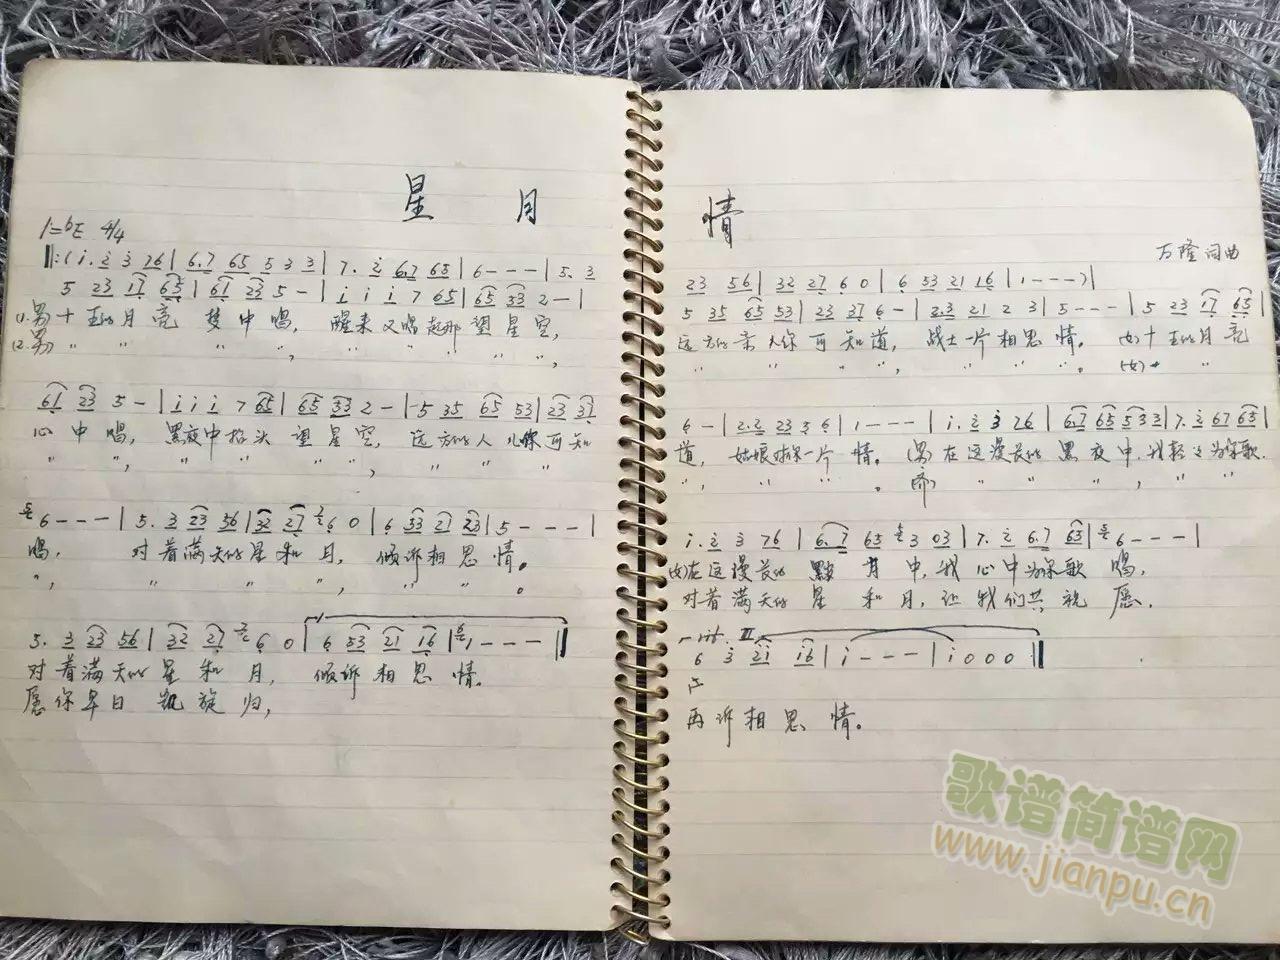 星 月 情
1=♭E 4/4
万隆 词曲
‖:(i. 2 3 76 | 6.7 65 5 3 3 | 7. 2 6.7 65 | 6 - - - | 5. 3
23 56 | 32 27 6 0 | 6 53 21 16 | 1 - - - ) |
5 23 17 65 | 61 23 5 - | i i i 7 65 | 65 53 2 - |
5 35 65 53 | 23 37 6 - | 2.3 21 2 3 | 5 - - - | 5 23 17 65 |
(1.男)十五的月亮 梦中唱, 醒来又唱起那望星空,
远方的亲人你可知道, 战士一片相思情。 (女)十五的月亮
(2.男) " " " ", " " " " ",
" " " ", " " "。 (女) " "
61 23 5 - | i i i 7 65 | 65 33 2 - | 5 35 65 53 | 23 37
6 - | 2.2 23 5 6 | 1 - - - | i. 2 3 76 | 6.7 65 5 3 3 | 7. 2 67 65 |
心中唱, 黑夜中抬头望星空, 远方的人儿你可知
道, 姑娘对你一片情。 (男)在这漫长的黑夜中, 我轻轻为你歌
6 - - - | 5. 3 23 56 | 32 27 6 0 | 6 53 21 23 | 5 - - - |
i. 2 3 76 | 6.7 65 3 03 | 7. 2 6.7 65 | 6 - - - |
唱, 对着满天的星和月, 倾诉相思情。
(女)在这漫长的黑夜中, 我心中为你歌唱,
对着满天的星和月, 让我们共祝愿,
5. 3 23 56 | 32 27 6 0 | 6 53 21 16 | 1 - - - ‖
6 3 21 16 | i - - - | i 0 0 0 ‖
对着满天的星和月, 倾诉相思情。
愿你早日凯旋归,
再诉相思情。
歌谱简谱网
www.jianpu.cn